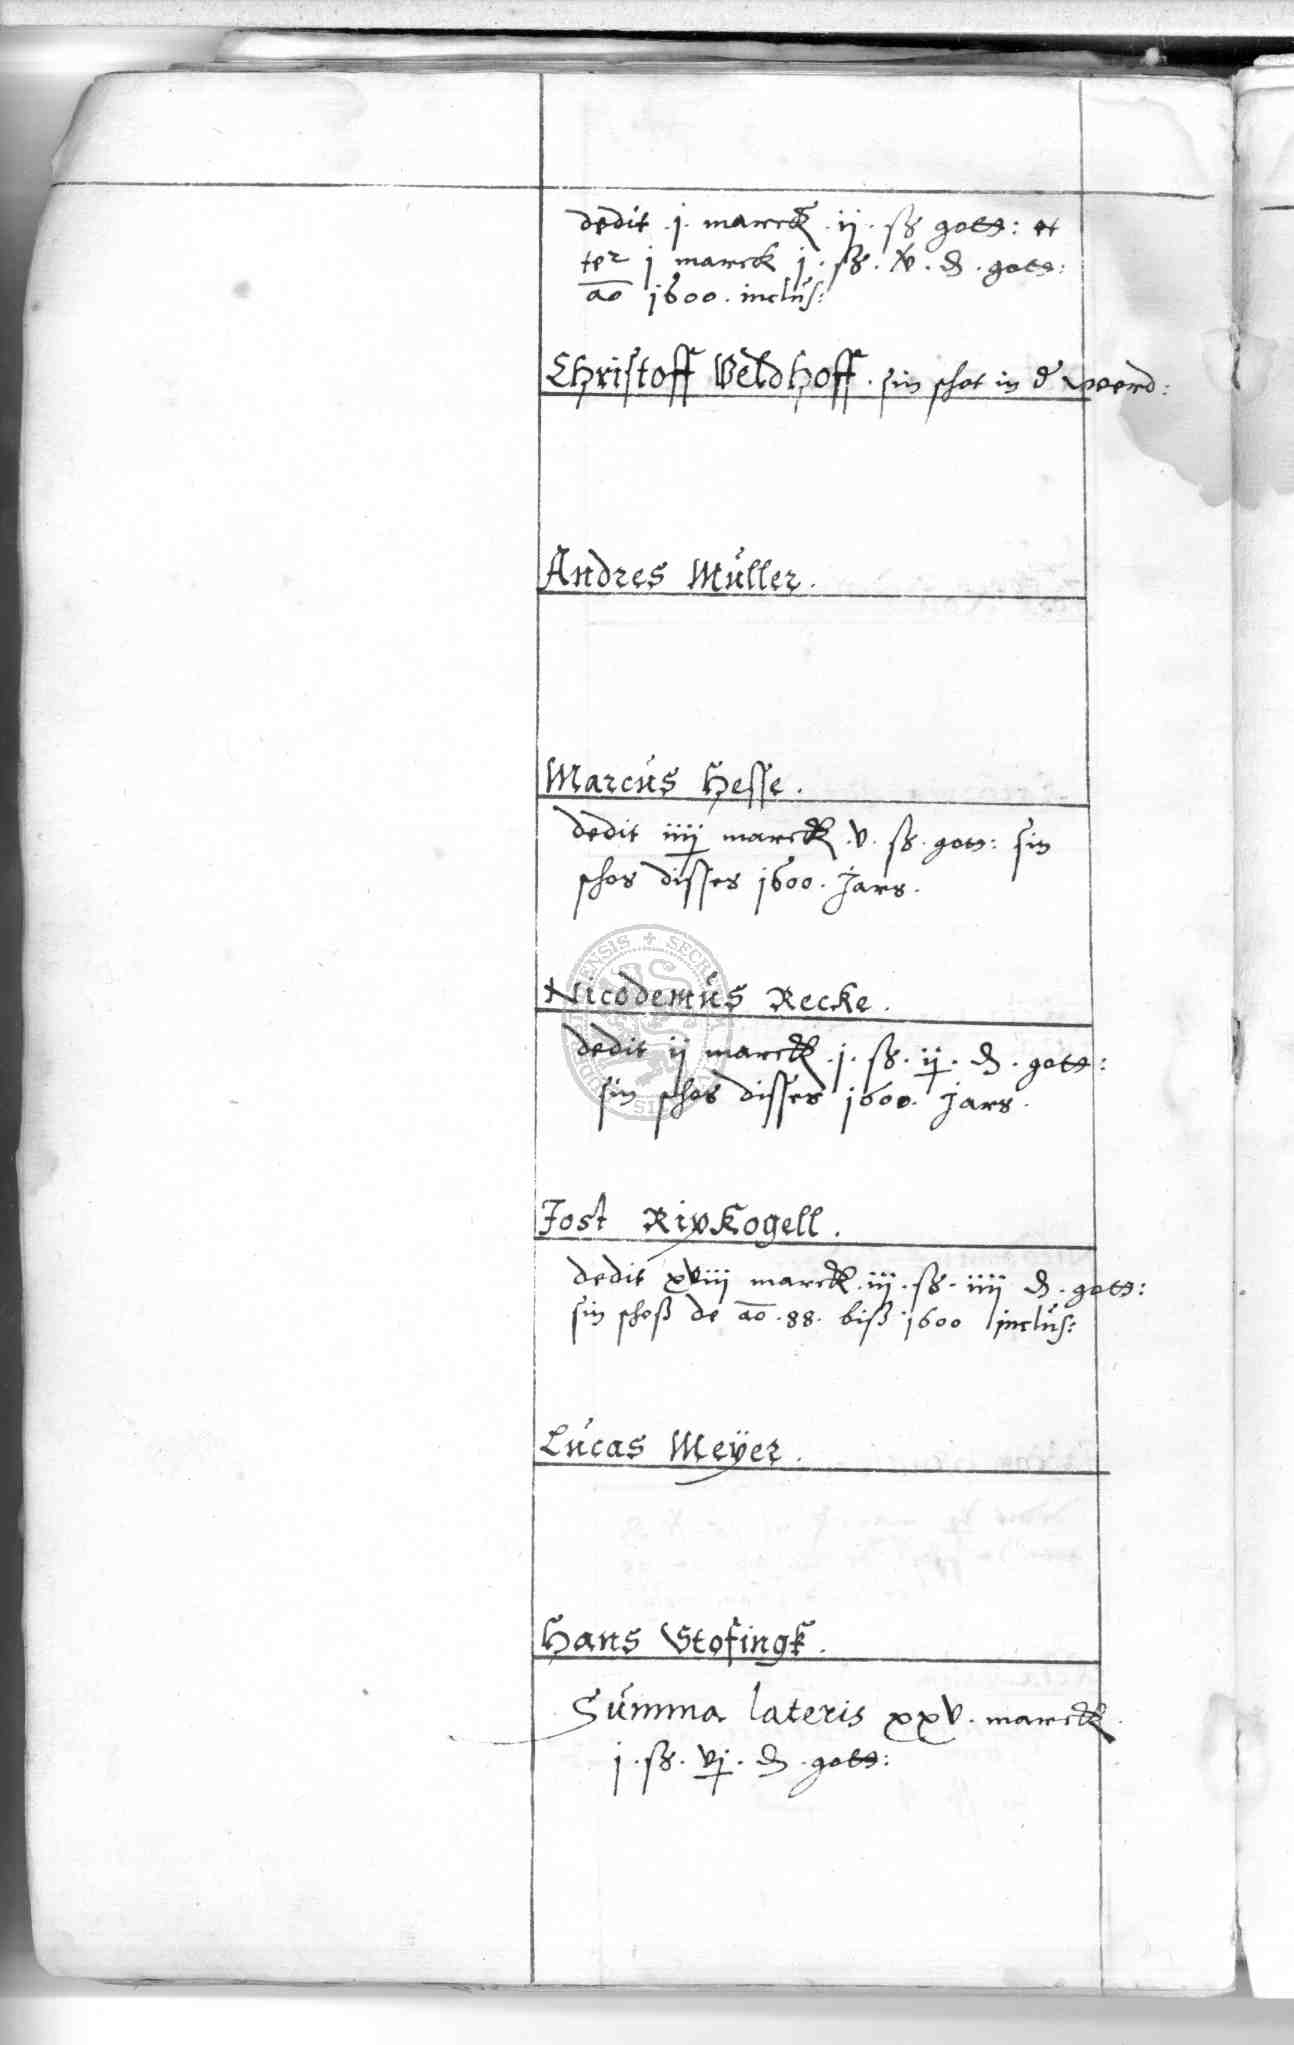 dedit .j. marck .ij. ß gotts: et
ter j marck j. ß. xv. ₰. gotts:
ao 1600. inclus:
Christoff Veldhoff. sin schot in d weerd:
Andres Müller.
Marcus Hesse.
dedit iiij marck .v. ß. gotts: sin
schos disses 1600. Jars.
Nicodemus Recke.
dedit ij marck .j. ß. ij. ₰. gotts:
sin schos disses 1600. Jars.
Jost Ripkogell.
dedit xviij marck .iij. ß. iiij ₰. gotts:
sin schoß de ao .88. biß 1600 inclus:
Lucas Meÿer.
Hans Stofingk.
Summa lateris xxv. marck
j. ß. vj. ₰. gotts: